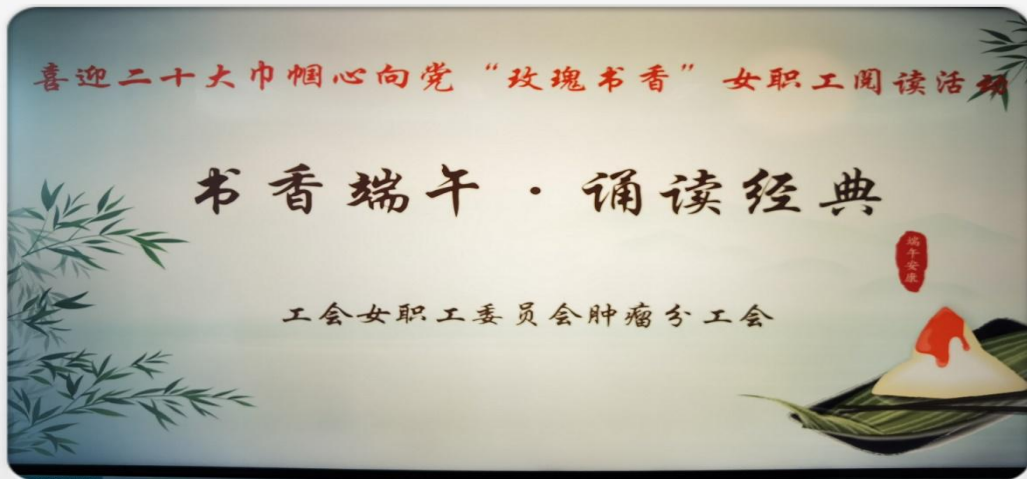 喜迎二十大巾帼心向党“玫瑰书香”女职工阅读活动
书香端午·诵读经典
端午安康
工会女职工委员会肿瘤分工会